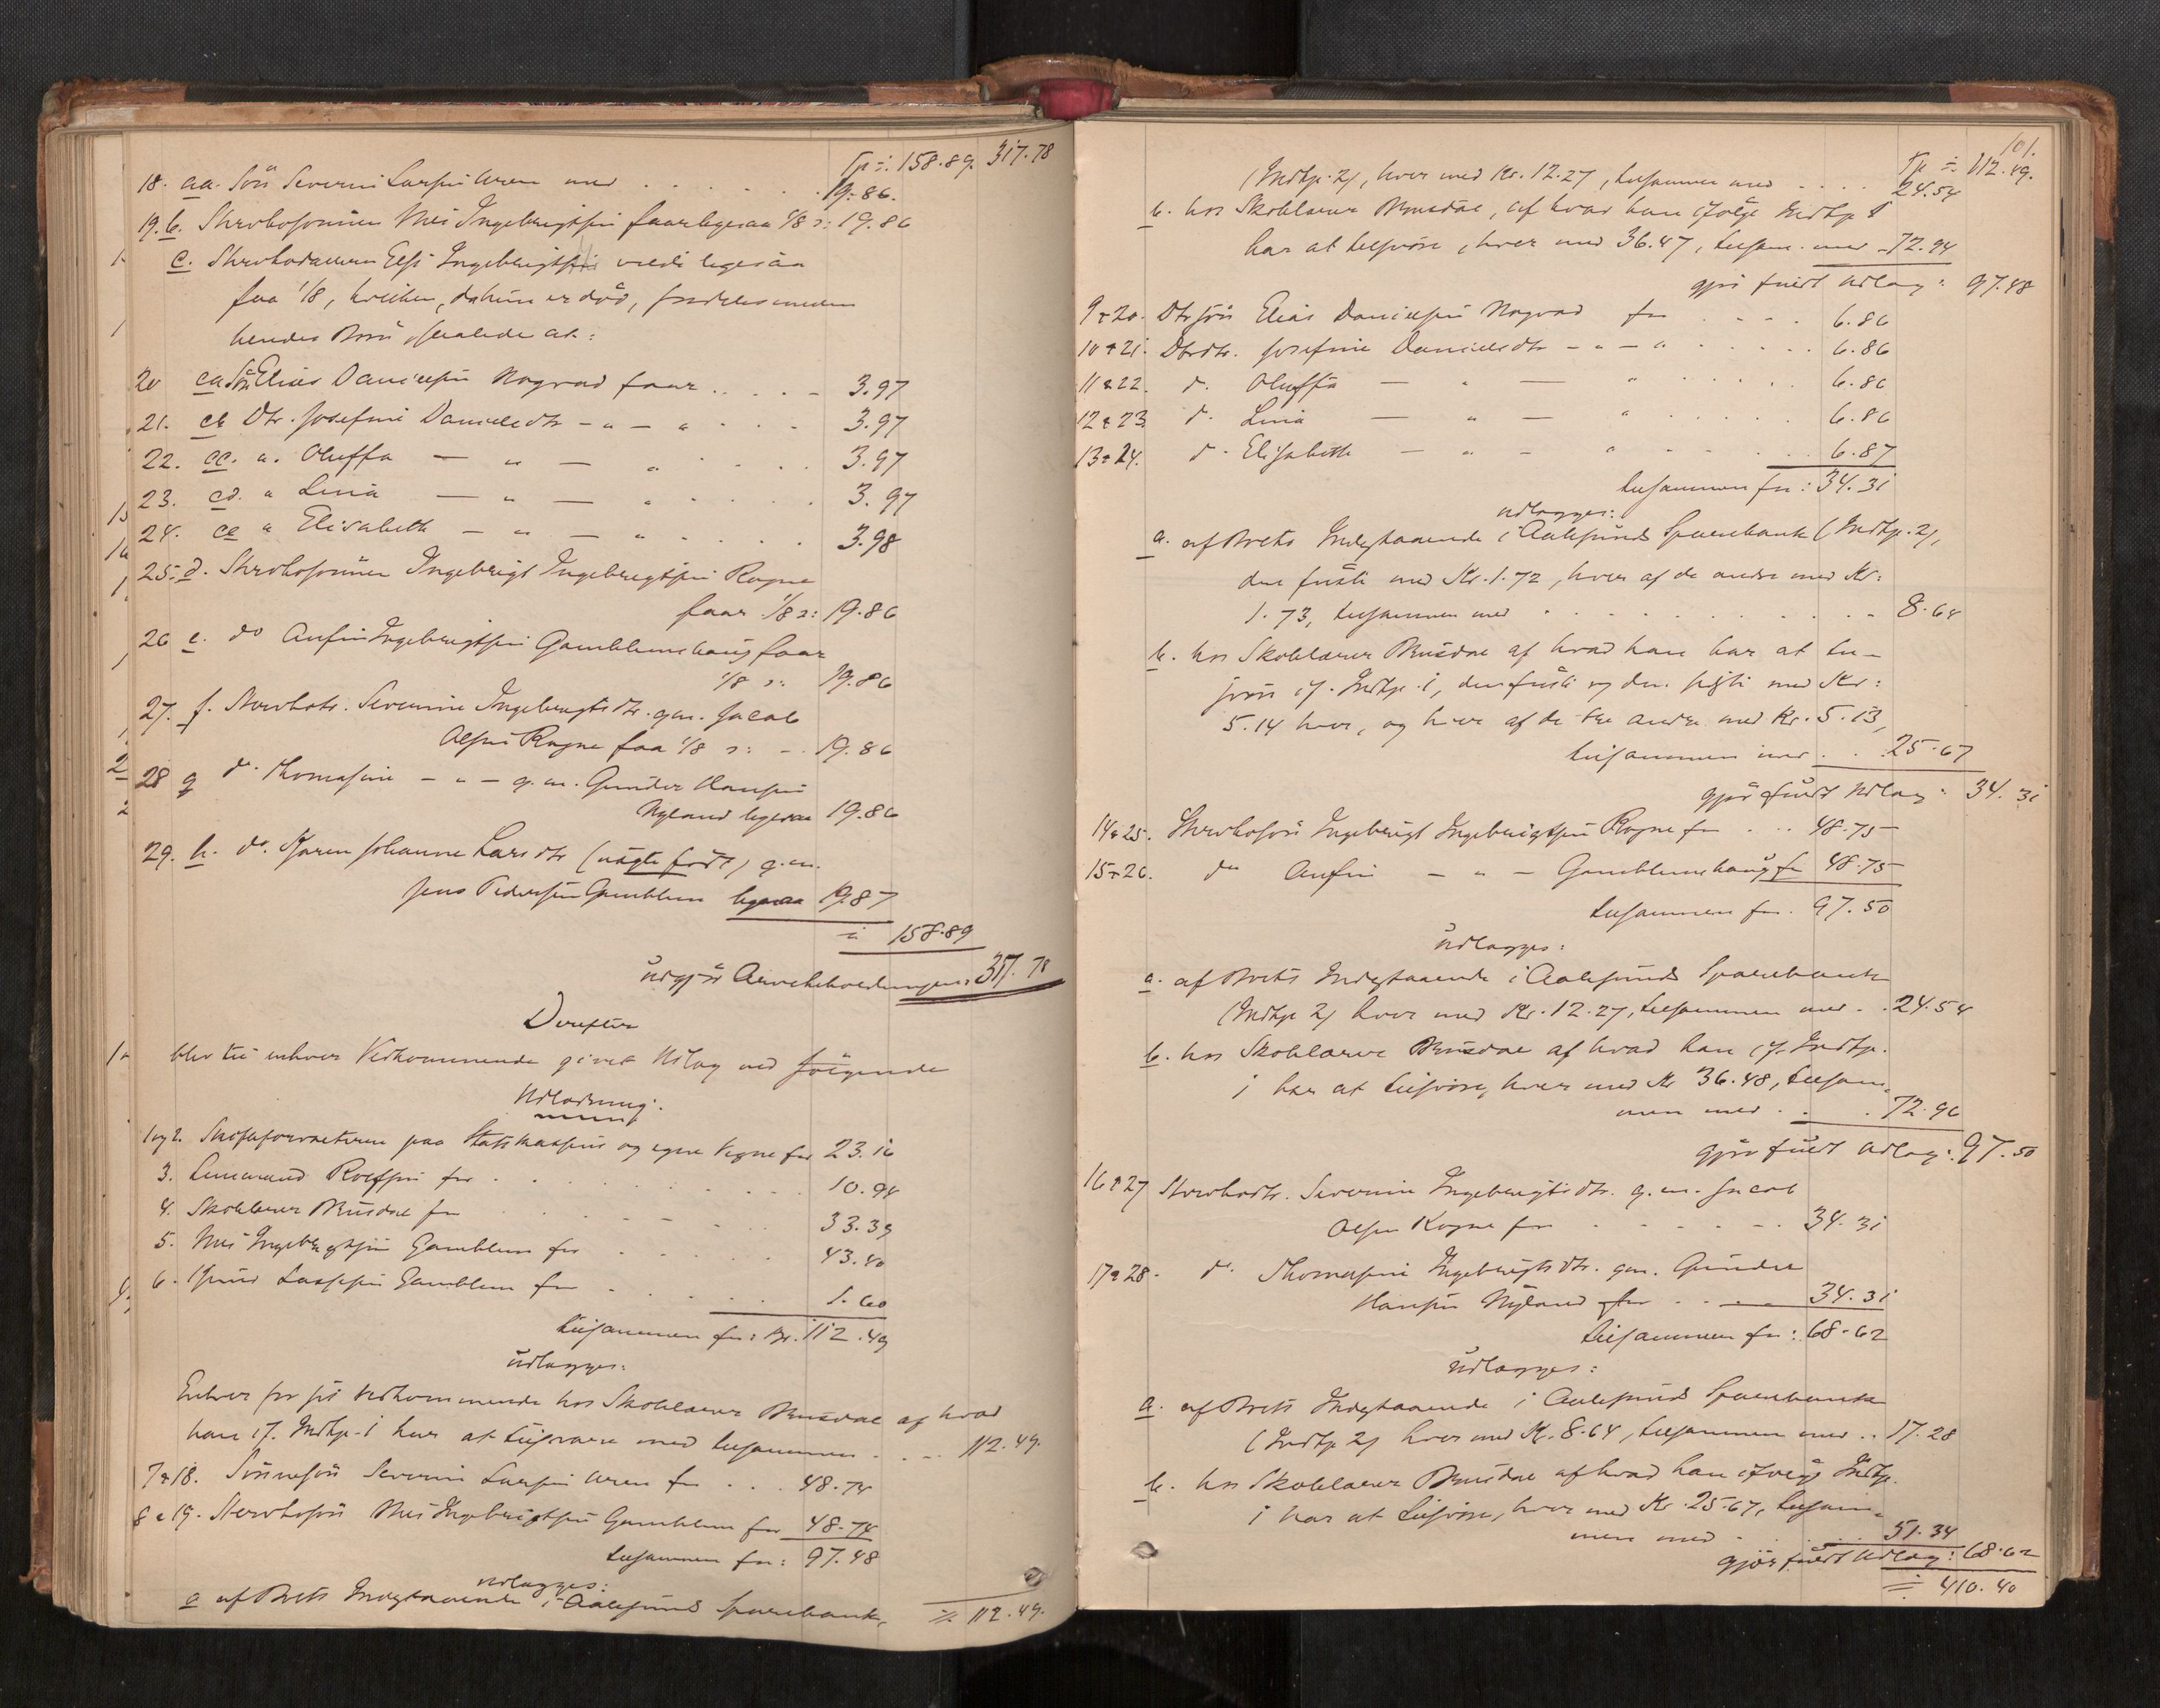 Tp ÷: 158.89. 317.78
18. aa. Søn Severin Larsen med . . . . 19.86.
19. b. Sterbosønnen Nils Ingebrigtsen faar ligesaa 1/8 ɔ: 19.86
c. Sterbodatteren Elsi Ingebrigtsdtr vilde ligesaa
faa 1/8, hvilken, da hun er død, fordeles mellem
hendes Børn, saaledes at:
20 ca Søn Elias Danielsen Nogvad faar . . . . 3.97
21. cb Dtr. Josefine Danielsdtr - " - " . . . 3.97
22. cc. " Oluffa — " — " . . . . 3.97
23. cd. " Lina — " — " . . . . 3.97
24. ce " Elisabeth — " — " . . . . 3.98
25. d. Sterbosønnen Ingebrigt Ingebrigtsen Rogne
faar 1/8 ɔ: 19.86
26 e. do Anfin Ingebrigtsen Gamblemshaug faar
1/8 ɔ: 19.86
27. f. Sterbodtr. Severine Ingebrigtsdtr. g.m. Jacob
Olsen Rogne faa 1/8 ɔ: . 19.86
28 g do. Thomasine — " — g.m. Gunder Hansen
Nyland ligesaa 19.86
29. h. do. Karen Johanne Larsdtr (uægte født) g.m.
Jens Pedersen Gamblem ligesaa 19.87
÷ 158.89
udgjør Arvebeholdningen: 317.78
Derefter
blev til enhver Vedkommende givet Udlæg ved følgende
Udlodning.
1 og 2. Skifteforvalteren paa Statskassens og egne Vegne for 23.16
3. Lensmand Rolfsen for . . . . 10.94
4. Skolelærer Brusdal for . . . . 33.39
5. Nils Ingebrigtsen Gamblem for . . . . 43.40
6. Knud Lassesen Gamblem for . . . . 1.60
tilsammen for: Kr. 112.49
udlægges:
Enhver for sit Vedkommende hos Skolelærer Brusdal af hvad
han if. Indtp. 1 har at tilsvare med tilsammen . . . . 112.49.
7 & 18. Sønnesøn Severin Larsen for . . . 48.74
8 & 19. Sterbosøn Nils Ingebrigtsen Gamblem for 48.74
tilsammen for: 97.48
udlægges:
a af Boets Indestaaende i Aalesunds Sparebank,
÷ 112.49.
101.
Tp ÷ 112.49.
(Indtp. 2), hver med Kr. 12.27, tilsammen med . . . . 24.54
b. hos Skolelærer Brusdal, af hvad han ifølge Indtp 1
har at tilsvare, hver med 36.47, tilsam. med - 72.94
gjør fuldt Udlæg: 97.48
9 & 20. Dtrsøn Elias Danielsen Nogvad for . . . . 6.86
10 & 21. Dtrdtr. Josefine Danielsdtr - " - " . . . . 6.86
11 & 22. do. Oluffa — " — " . . . . 6.86
12 & 23. do. Lina — " — " . . . . 6.86
13 & 24. do. Elisabeth — " — " . . . . 6.87
tilsammen for: 34.31
udlægges:
a. af Boets Indestaaende i Aalesunds Sparebank (Indtp. 2),
den første med Kr. 1.72, hver af de andre med Kr:
1.73, tilsammen med . . . . 8.64
b. hos Skolelærer Brusdal af hvad han har at til-
svare if. Indtp. 1, den første og den sidste med Kr:
5.14 hver, og hver af de tre andre med Kr. 5.13,
tilsammen med . . 25.67
gjør fuldt Udlæg: 34.31
14 & 25. Sterbosøn Ingebrigt Ingebrigtsen Rogne for . . . 48.75
15 & 26. do Anfin — " — Gamblemshaug for 48.75
tilsammen for. 97.50
udlægges:
a. af Boets Indestaaende i Aalesunds Sparebank
(Indtp 2) hver med Kr. 12.27, tilsammen med . . 24.54
b. hos Skolelærer Brusdal af hvad han if. Indtp.
1 har at tilsvare, hver med Kr 36.48, tilsam-
men med . . . 72.96
gjør fuldt Udlæg: 97.50
16 & 27 Sterbodtr. Severine Ingebrigtsdtr. g.m. Jacob
Olsen Rogne for . . . . 34.31
17 & 28. do. Thomasine Ingebrigtsdtr. gm. Gunder
Hansen Nyland for . . . . 34.31
tilsammen for: 68.62
udlægges:
a. af Boets Indestaaende i Aalesunds Sparebank
(Indtp 2) hver med Kr. 8.64, tilsammen med . . 17.28
b. hos Skolelærer Brusdal af hvad han ifølge Indtp.
1 har at tilsvare, hver med Kr. 25.67, tilsam-
men med . . . . 51.34
gjør fuldt Udlæg: 68.62
÷ 410.40